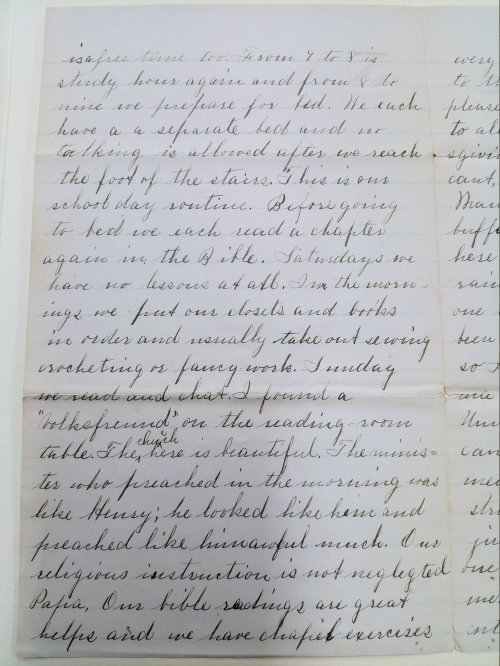 is a free time too. From 7 to 8 is
study hour again and from 8 to
nine we prepare for bed. We each
have a a separate bed and no
talking is allowed after we reach
the foot of the stairs. This is our
school day routine. Before going
to bed we each read a chapter
again in the Bible. Saturdays we
have no lessons at all. In the morn-
ings we put our closets and books
in order and usually take out sewing
crocheting or fancy work. Sunday
we read and chat. I found a
"Volksfreund" on the reading-room
table. The church here is beautiful. The minis=
ter who preached in the morning was
like Henry; he looked like him and
preached like him awful much. Our
religious instruction is not neglegted
Papa. Our bible readings are great
helps and we have chapel exercises
every
to
please
to
cant,
here
rain
one
been
so I